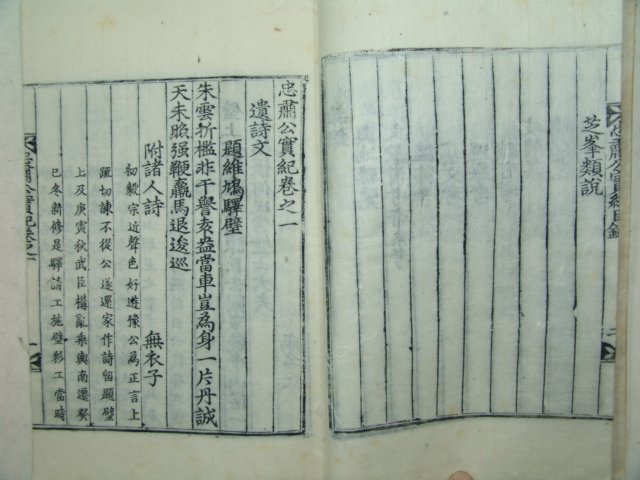 忠肅公實紀目錄
芝峯類說
忠肅公實紀卷之一
遺詩文
題維鳩驛壁
朱雲折檻非干譽袁盎當車豈為身一片丹誠
天未照强鞭羸馬退逡巡
附諸人詩
無衣子
初毅宗近聲色好遊豫公為正言上
疏切諫不從公遂還家作詩留題壁
上及庚寅秋武臣搆亂乘輿南遷癸
巳冬新修是驛請工施壁彩工當時
忠肅公實紀卷之一
一